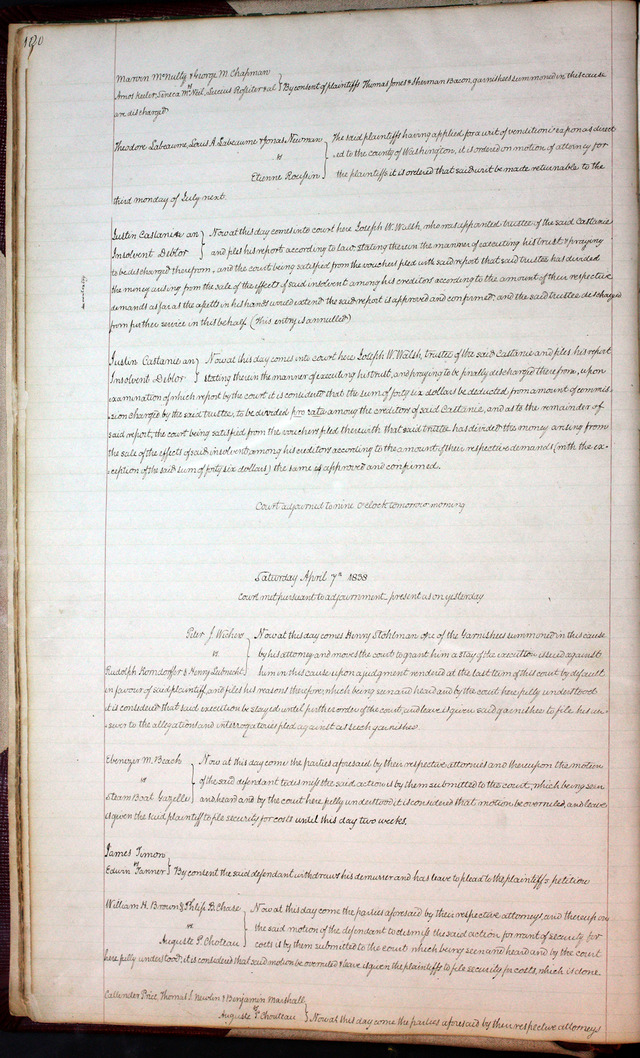 190
Marvin McNulty & George M. Chapman
vs
Amos Keeler, Seneca McNeil, Lucius Rossiter & al } By consent of plaintiffs Thomas Jones & Sherman Bacon, garnishees summoned in this cause
are discharged
Theodore Labeaume, Louis A Labeaume & Jonas Newman } The said plaintiffs having applied for a writ of venditioni exponas direct
vs ed to the county of Washington, it is ordered on motion of attorney for
Etienne Roussin the plaintiffs it is ordered that said writ be made returnable to the
third monday of July next.
Justin Castanie an } Now at this day comes into court here Joseph W. Walsh, who was appointed trustee of the said Castanie
Insolvent Debtor and files his report according to law stating therein the manner of executing his trust & praying
to be discharged therefrom, and the court being satisfied from the vouchers filed with said report that said trustee has divided
the money arising from the sale of the effects of said insolvent among his creditors according to the amount of their respective
demands as far as the assetts in his hands would extend the said report is approved and confirmed, and the said trustee discharged
from further service in this behalf. (This entry is annulled)
Justin Castanie an } Now at this day comes into court here Joseph W. Walsh, trustee of the said Castanie and files his report
Insolvent Debtor stating therein the manner of executing his trust, and praying to be finally discharged therefrom, upon
examination of which report by the court it is considered that the sum of forty six dollars be deducted from amount of commis
sion charged by the said trustee, to be divided pro rata among the creditors of said Castanie, and as to the remainder of
said report, the court being satisfied from the vouchers filed therewith that said trustee has divided the money arising from
the sale of the effects of said insolvent, among his creditors according to the amount of their respective demands (with the ex-
ception of the said sum of forty six dollars) the same is approved and confirmed.
Court adjourned to nine o'clock tomorrow morning
Saturday April 7th 1838
Court met pursuant to adjournment present as on yesterday
Peter J. } Now at this day comes Henry Stohlman one of the Garnishees summoned in this cause
vs by his attorney and moves the court to grant him a stay of the execution issued against
Rudolph Korndorffer & Henry Lubrecht him in this cause upon a judgment rendered at the last term of this court by default
in favour of said plaintiff, and files his reasons therefor which being seen and heard and by the court here fully understood
it is considered that said execution be stayed until further order of the court, and leave is given said garnishee to file his an-
swer to the allegations and interrogatories filed against as such garnishee.
Ebenezer M. Beach } Now at this day come the parties aforesaid by their respective attornies and thereupon the motion
vs of the said defendant to dismiss the said action is by them submitted to the court, which being seen
Steam Boat Gazelle and heard and by the court here fully understood it is considered that motion be overruled, and leave
is given the said plaintiff to file security for costs until this day two weeks.
James Timon
vs
Edwin Tanner } By consent the said defendant withdraws his demurrer and has leave to plead to the plaintiff's petition
William H. Brown & Philip B. Chase } Now at this day come the parties aforesaid by their respective attorneys and thereupon
vs the said motion of the defendant to dismiss the said action for want of security for
Auguste P. Choteau costs is by them submitted to the court which being seen and heard and by the court
here fully understood, it is considered that said motion be overruled & leave is given the plaintiffs to file security for costs, which is done
Callender Price, Thomas J. Newlin & Benjamin Marshall
vs
Auguste P. Chouteau } Now at this day come the parties aforesaid by their respective attorneys